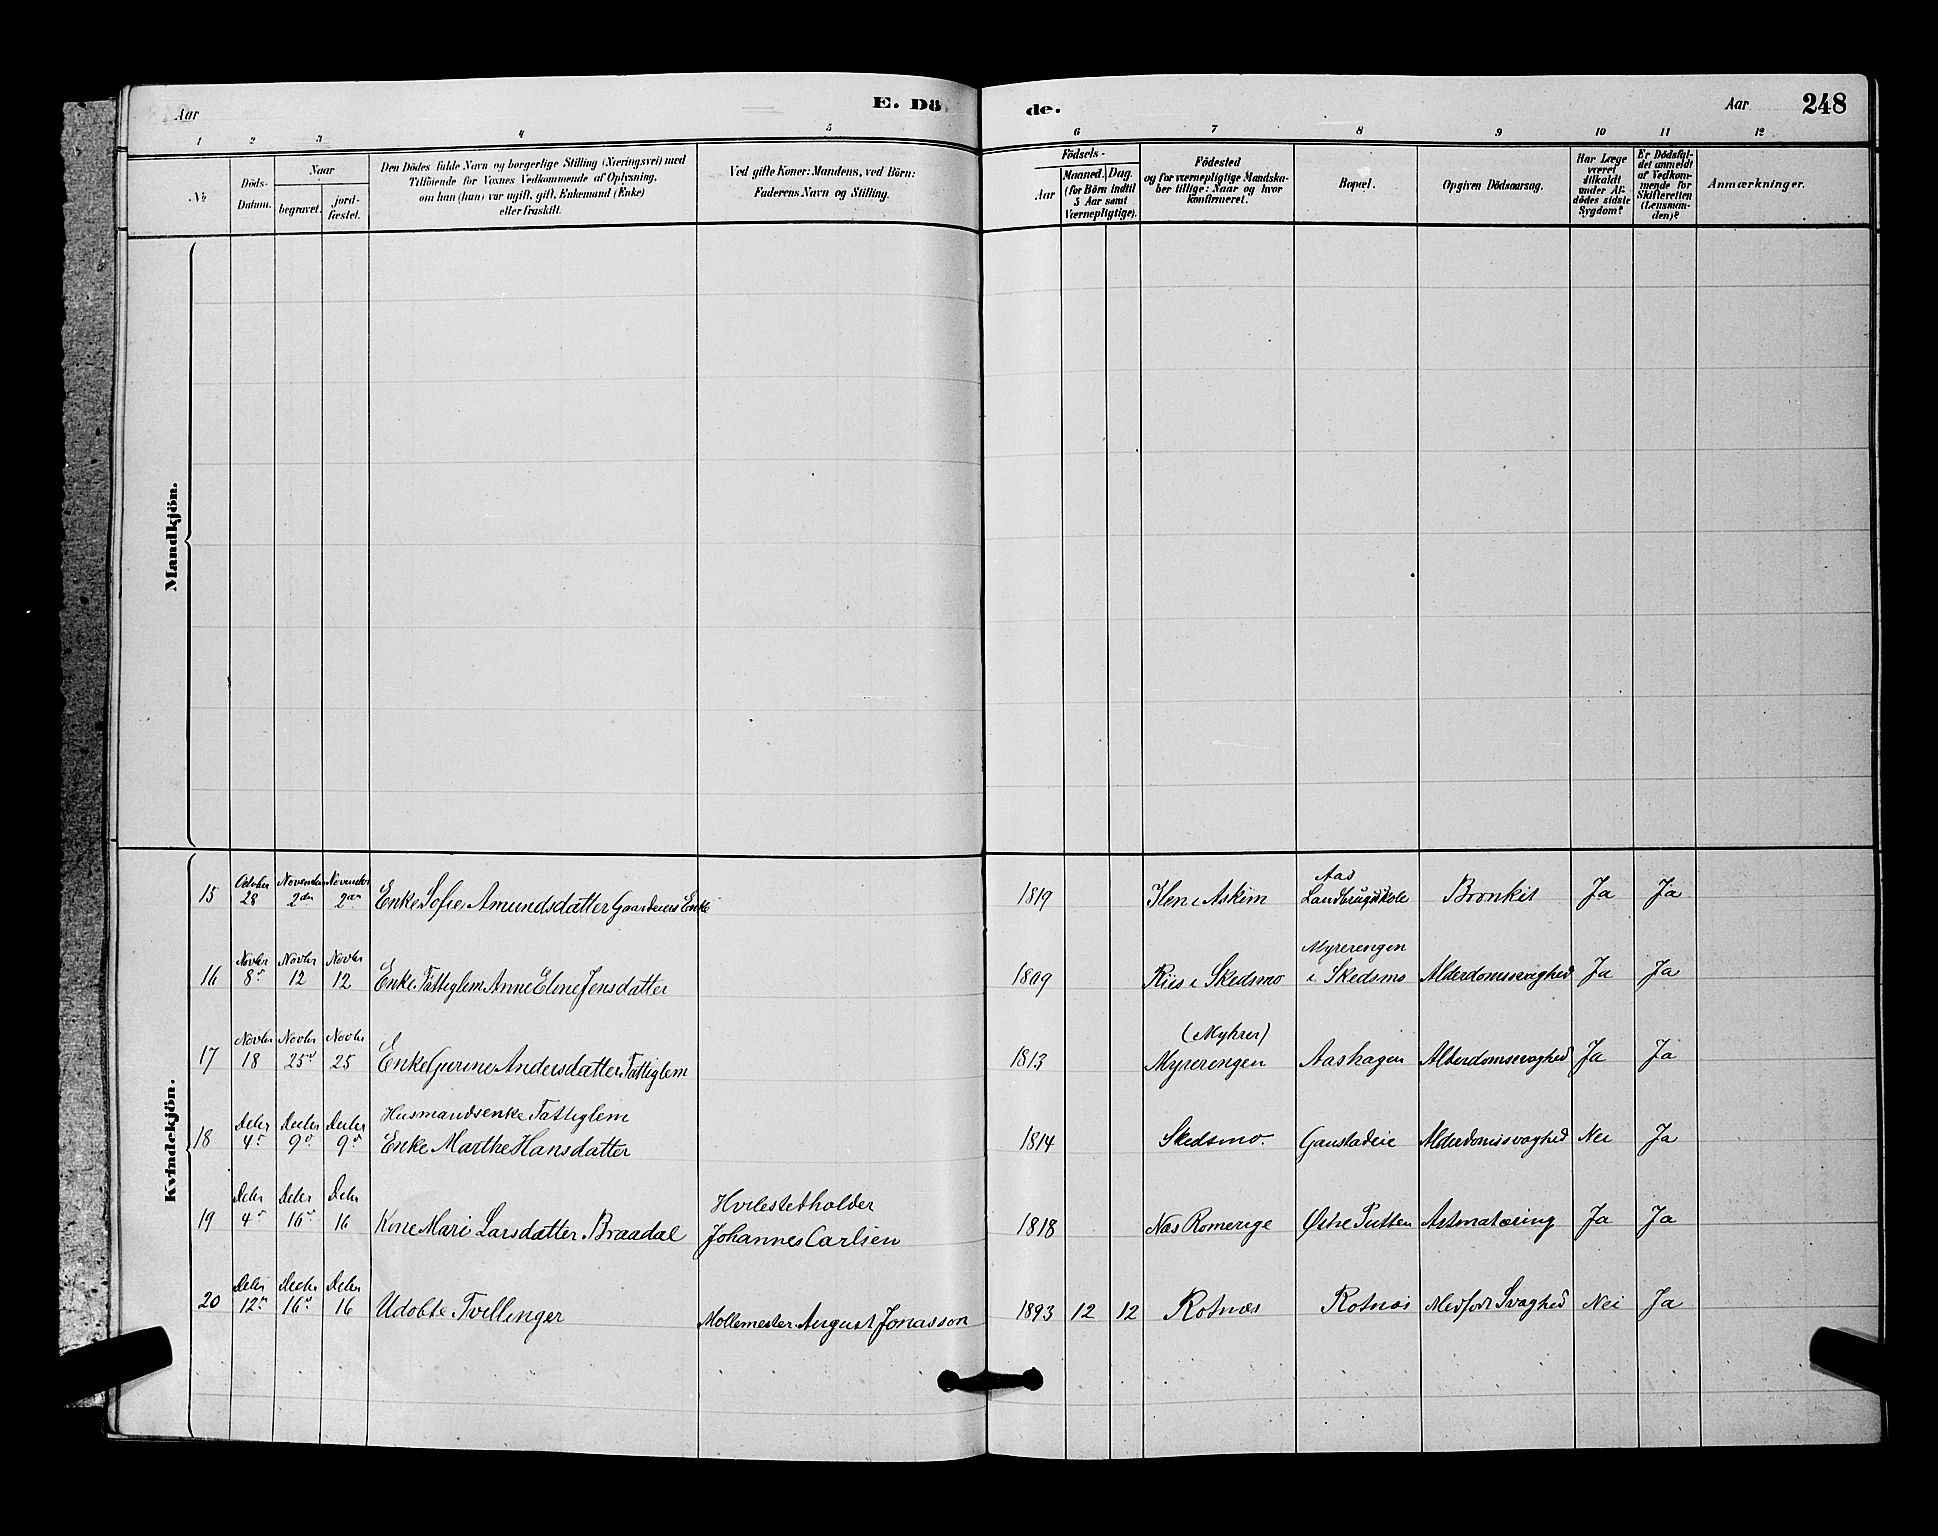 Aar
E. Dö
de.
Aar
248
1 2 3 4 5 6 7 8 9 10 11 12
No.
Døds-
Datum.
Naar
begravet.
jord-
fæstet.
Den Dödes fulde Navn og borgerlige Stilling (Næringsvei) med
Tilföiende for Voxnes Vedkommende af Oplysning,
om han (hun) var ugift, gift, Enkemand (Enke)
eller fraskilt.
Ved gifte Koner: Mandens, ved Börn:
Faderens Navn og Stilling.
Födsels-
Aar
Maaned. Dag.
(for Börn indtil
5 Aar samt
Værnepligtige).
Födested
og for værnepligtige Mandska-
ber tillige: Naar og hvor
konfirmeret.
Bopæl.
Opgiven Dödsaarsag.
Har Læge
været
tilkaldt
under Af-
dödes sidste
Sygdom?
Er Dödsfal-
det anmeldt
af Vedkom-
mende for
Skifteretten
(Lensman-
den)?
Anmærkninger.
Mandkjön.
Kvindekjön.
15 October 28 November 2den November 2den Enke Sofie Amundsdatter Gaardeiers Enke 1819 Ilen i Askim Aas Landbrugsskole Bronkit Ja Ja
16 Novbr 8de Novbr 12 Novbr 12 Enke Fattiglem Anne Eline Jensdatter 1809 Riis i Skedsmo Myrerengen i Skedsmo Alderdomssvaghed Ja Ja
17 Novbr 18 Novbr 25de Novbr 25 Enke Gurine Andersdatter Fattiglem 1813 (Myhrer) Myrerengen Aashagen Alderdomssvaghed Ja Ja
Husmandsenke Fattiglem
18 Decbr 4de Decbr 9de Decbr 9de Enke Marthe Hansdatter 1814 Skedsmo. Gaustadeie Alderdomssvaghed Nei Ja
Hvilestedholder
19 Decbr 4de Decbr 16de Decbr 16 Kone Mari Larsdatter Braadal Johannes Carlsen 1818 Næs Romerige Østre Tutten Astmatæring Ja Ja
20 Decbr 12te Decbr 16de Decbr 16 Udøbte Tvillinger Møllemester August Jonasson 1893 12 12 Rotnæs Rotnæs Medfødt Svaghed Nei Ja